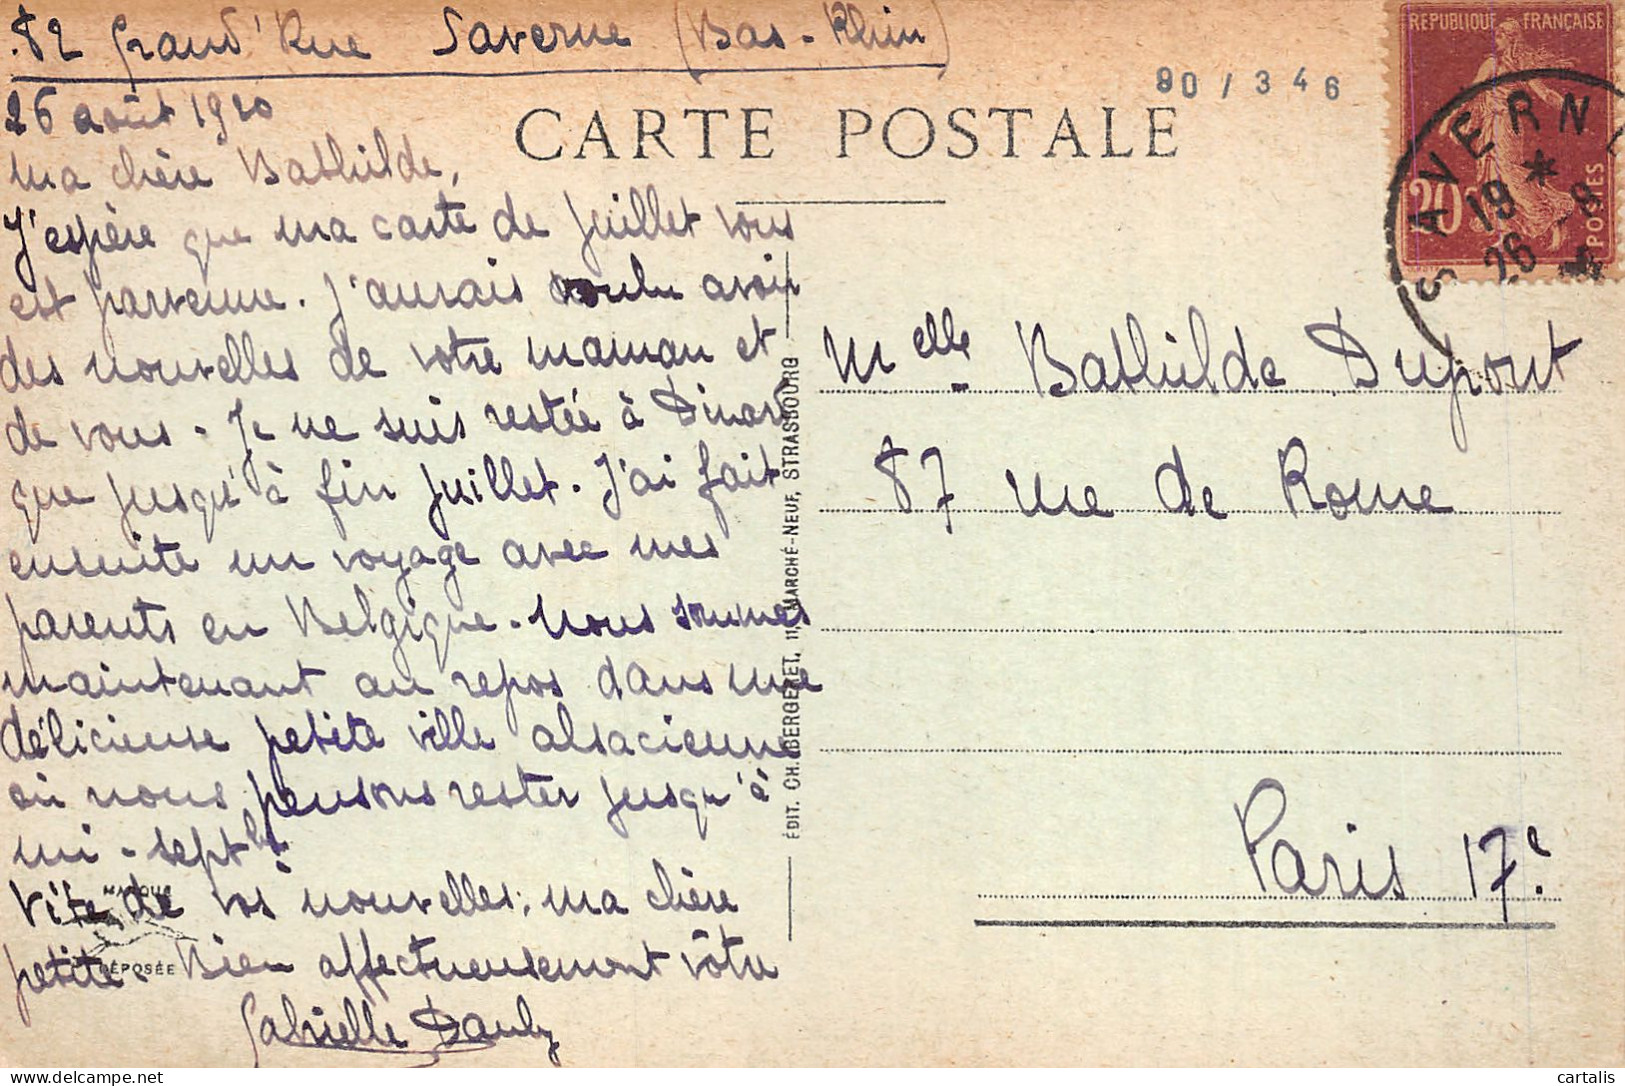 82 Grand'Rue Saverne (Bas-Rhin)
26 août 1920
Ma chère Bathilde,
J'espère que ma carte de juillet vous
est parvenue. J'aurais voulu avoir
des nouvelles de votre maman et
de vous. Je ne suis restée à Dinard
que jusqu'à fin juillet. J'ai fait
ensuite un voyage avec mes
parents en Belgique. Nous sommes
maintenant au repos dans une
délicieuse petite ville alsacienne
où nous pensons rester jusqu'à
mi-septbre.
Vite de vos nouvelles, ma chère
petite. Bien affectueusement vôtre
Gabrielle
MARQUE
DÉPOSÉE
80/346
CARTE POSTALE
ÉDIT. CH. BERGERET, 11, MARCHÉ-NEUF, STRASBOURG
REPUBLIQUE FRANÇAISE
20c
POSTES
SAVERNE
19 *
26 -8
Melle Bathilde Dupont
87 rue de Rome
Paris 17e.
cartalis